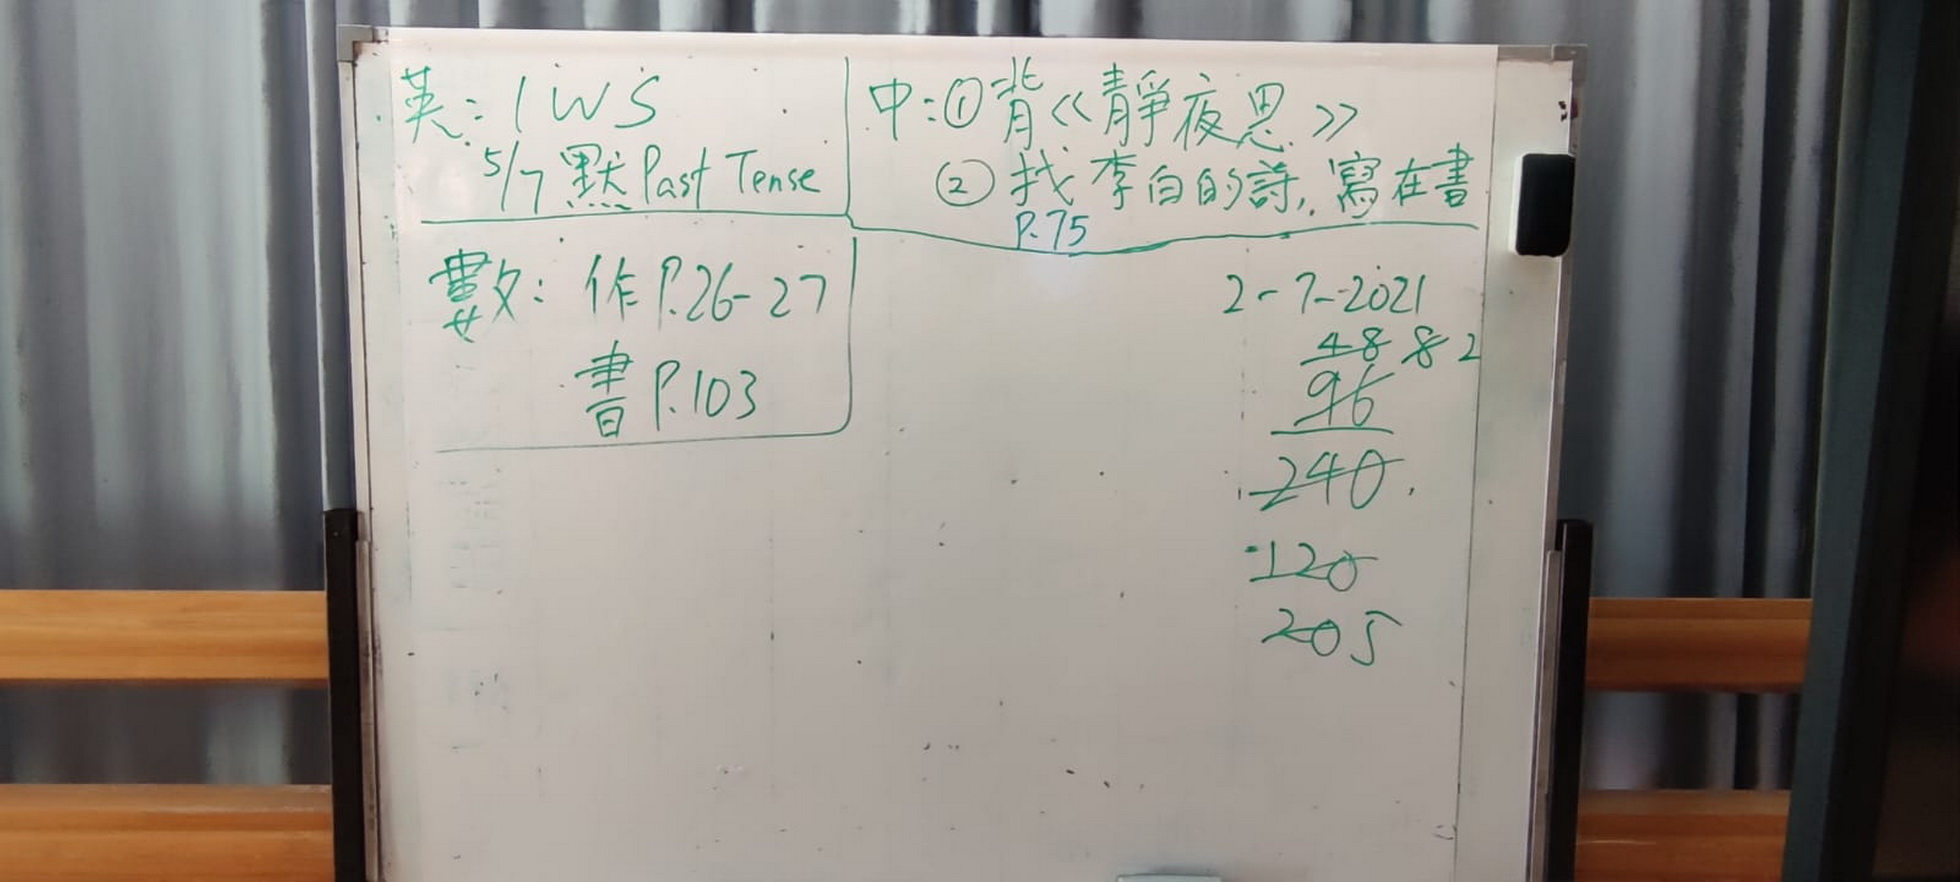 英：1 WS
5/7 默 Past Tense
中：① 背《靜夜思》
② 找李白的詩，寫在書
P.75
數：作 P.26-27
書 P.103
2-7-2021
48 8 2
96
240
120
205